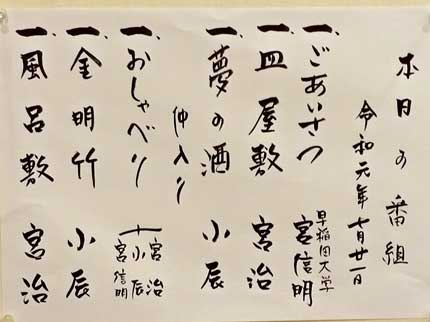 本日の番組
令和元年七月廿一日
一、ごあいさつ 早稲田大学 宮信明
一、皿屋敷 宮治
一、夢の酒 小辰
仲入り
一、おしゃべり 宮治 小辰 宮信明
一、金明竹 小辰
一、風呂敷 宮治